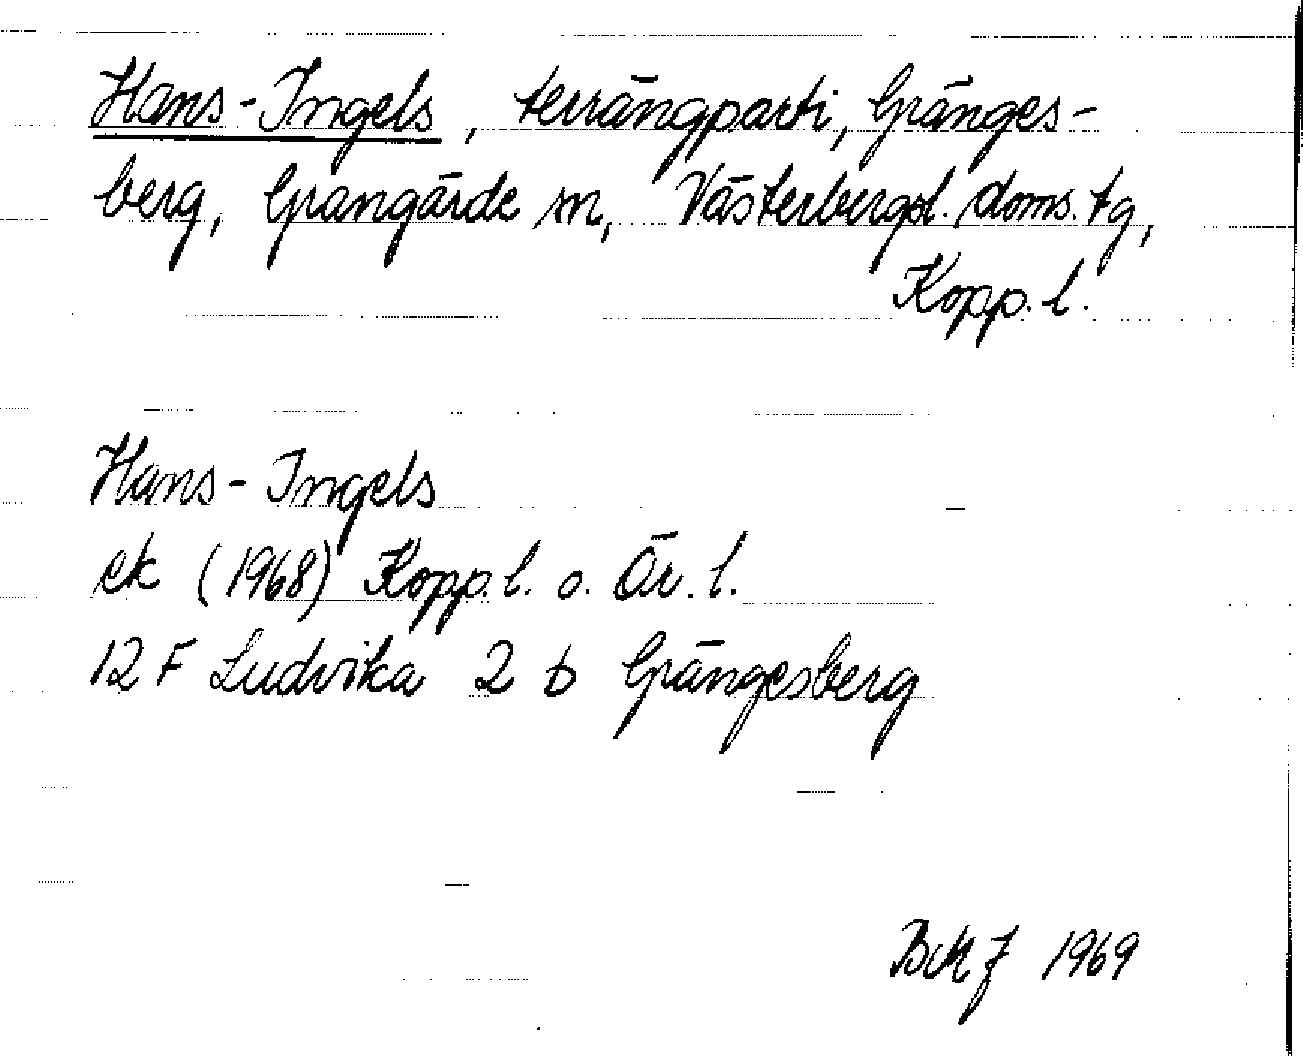 Hans-Ingels, terrängparti, Gränges-
berg, Grangärde sn, Västerbergsl. doms. tg,
Kopp. l.
Hans-Ingels
ek (1968) Kopp. l. o. Ör. l.
12 F Ludvika 2 b Grängesberg
1969